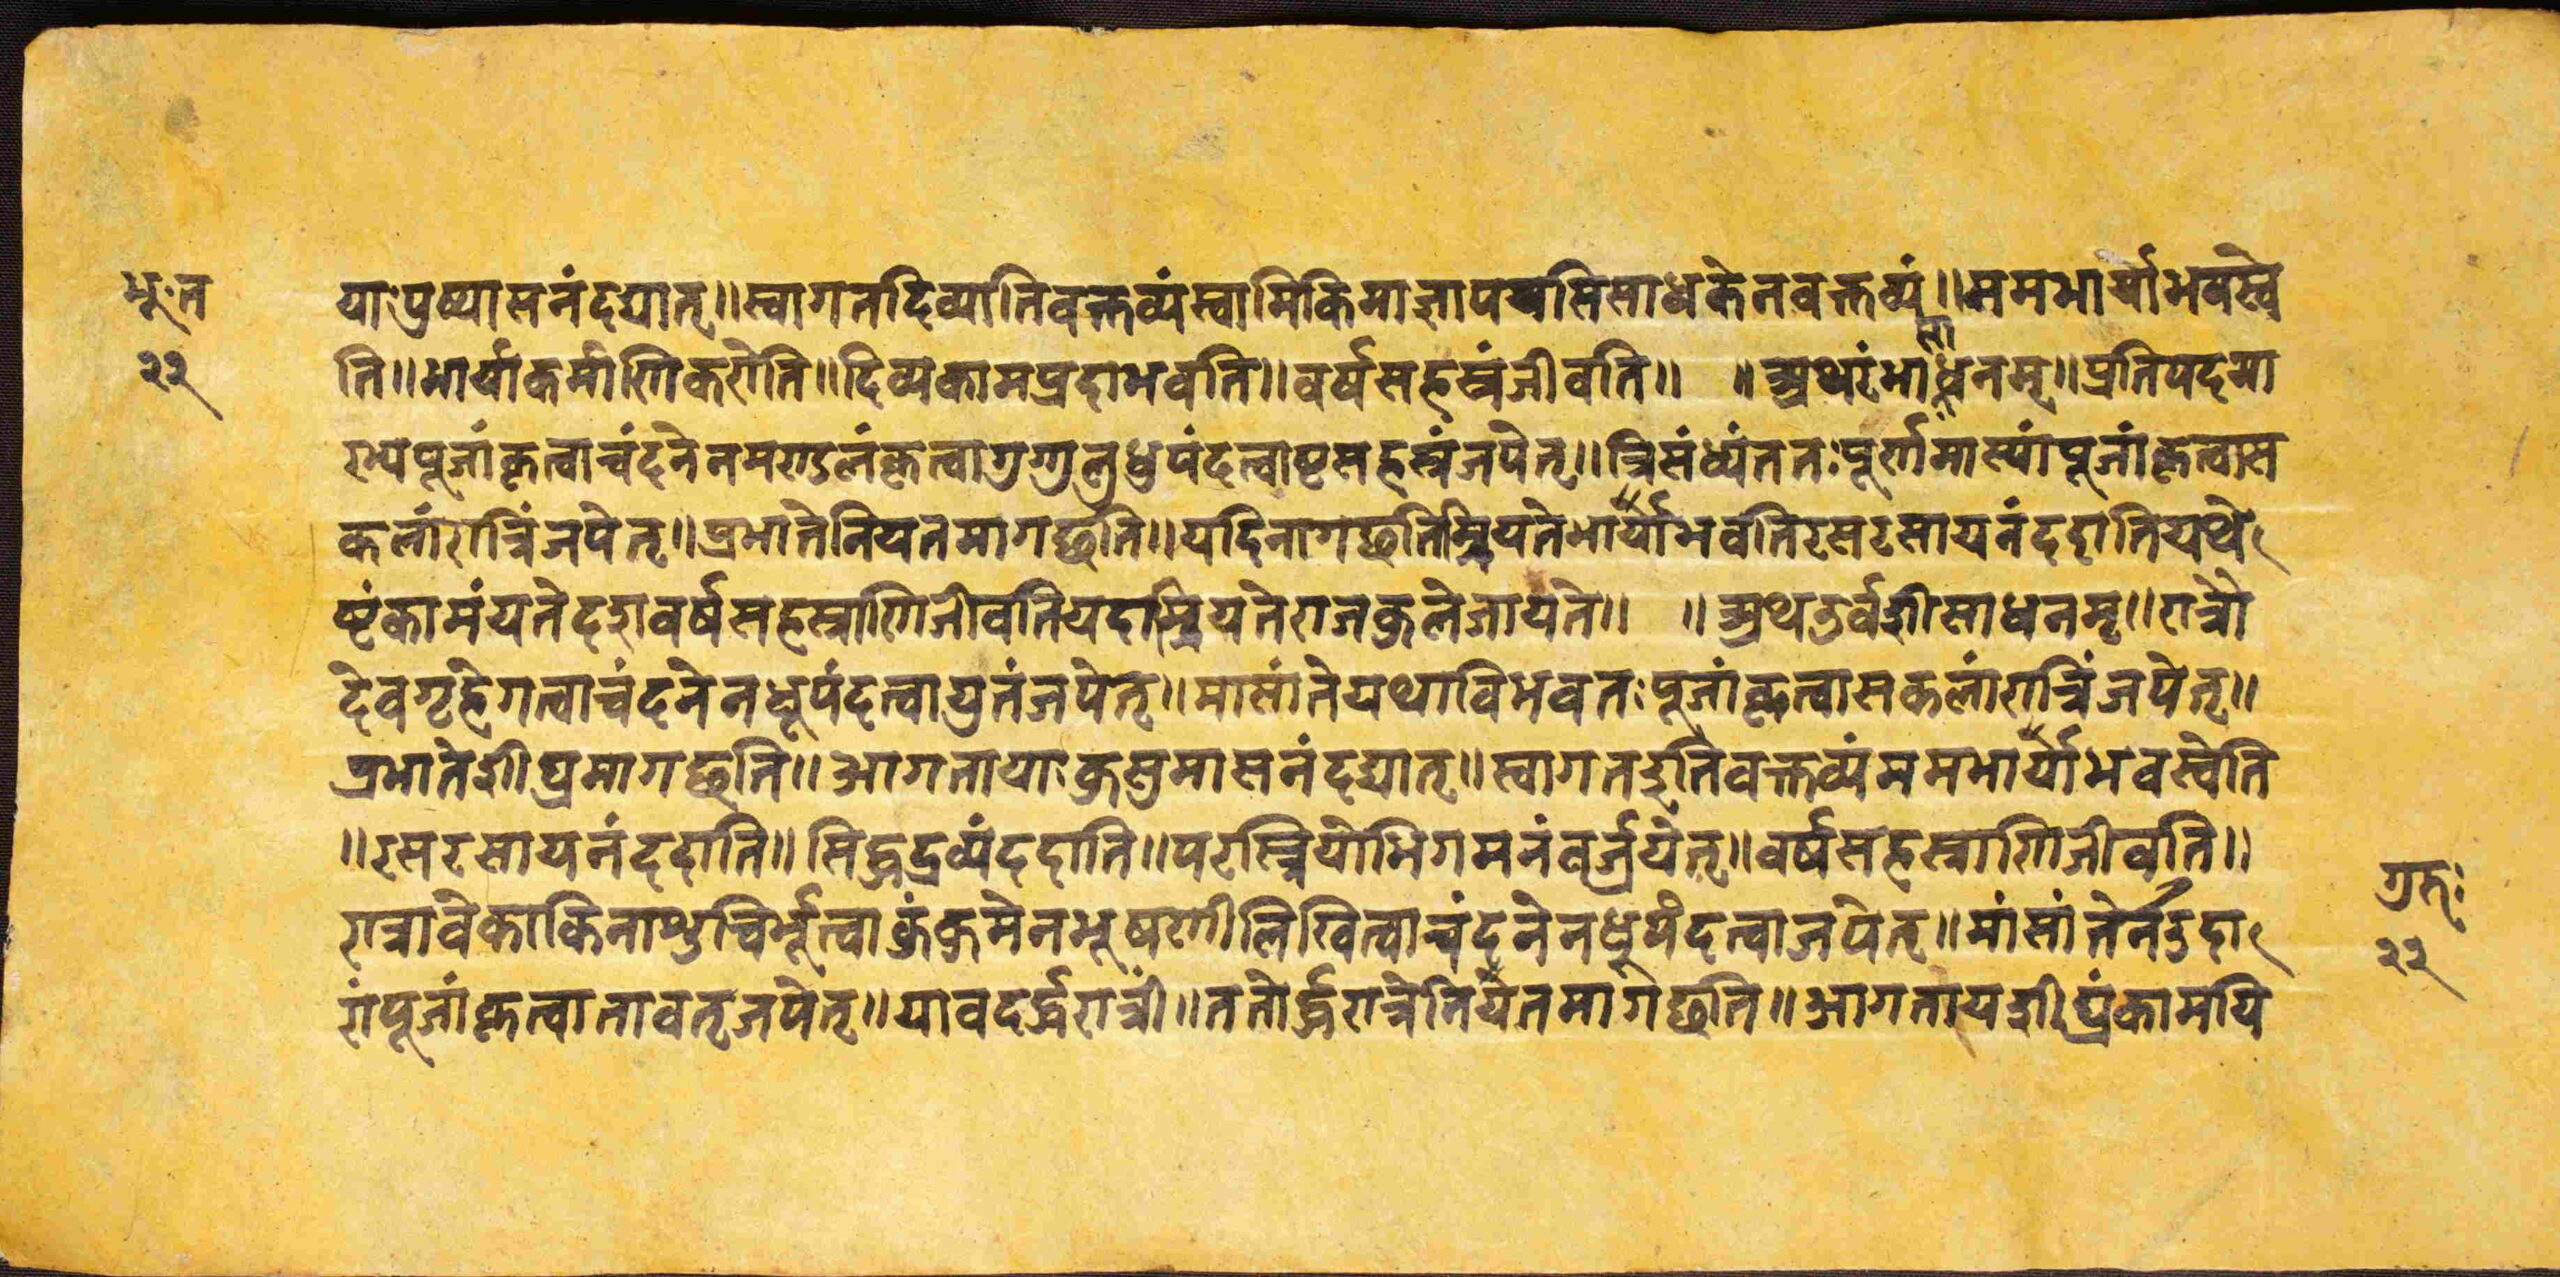 भू॰त
२२
याःपुष्पासनंदद्यात्॥स्वागतदिव्यातिवक्तव्यंस्वामिकिमाज्ञापयसिसाधकेनवक्तव्यं॥ममभार्याभवस्वे
ति॥भार्याकर्माणिकरोति॥दिव्यकामप्रदाभवति॥वर्षसहस्रंजीवति॥ ॥अथरंभासाधनम्॥प्रतिपदमा
रभ्यपूजांकृत्वाचंदनेनमण्डलंकृत्वागुग्गुलुधुपंदत्वाष्टसहस्रंजपेत्॥त्रिसंध्यंततःपूर्णमास्यांपूजांकृत्वास
कलांरात्रिंजपेत्॥प्रभातेनियतमागछति॥यदिनागछतिम्रियतेभार्याभवतिरसरसायनंददातियथे
ष्टंकामंयतेदशवर्षसहस्राणिजीवतियदाम्रियतेराजकुलेजायते॥ ॥अथउर्वशीसाधनम्॥रात्रो
देवगृहेगत्वाचंदनेनधूपंदत्वायुतंजपेत्॥मासांतेयथाविभवतःपूजांकृत्वासकलांरात्रिंजपेत्॥
प्रभातेशीघ्रमागछति॥आगतायाःकुसुमासनंदद्यात्॥स्वागतइतिवक्तव्यंममभार्याभवस्वेति
॥रसरसायनंददाति॥सिद्धद्रव्यंददाति॥परस्त्रियोभिगमनंवर्ज्जयेत्॥वर्षसहस्राणिजीवति॥
रात्रावेकाकिनाशुचिर्भूत्वाकुंकुमेनभूषणीलिखित्वाचंदनेनधूपंदत्वाजपेत्॥मांसांतेनउदा
रांपूजांकृत्वातावत्जपेत्॥यावदर्द्धरात्रीं॥ततोर्द्धरात्रेनियतमागछति॥आगतायशीघ्रंकामयि
गुरुः
२२